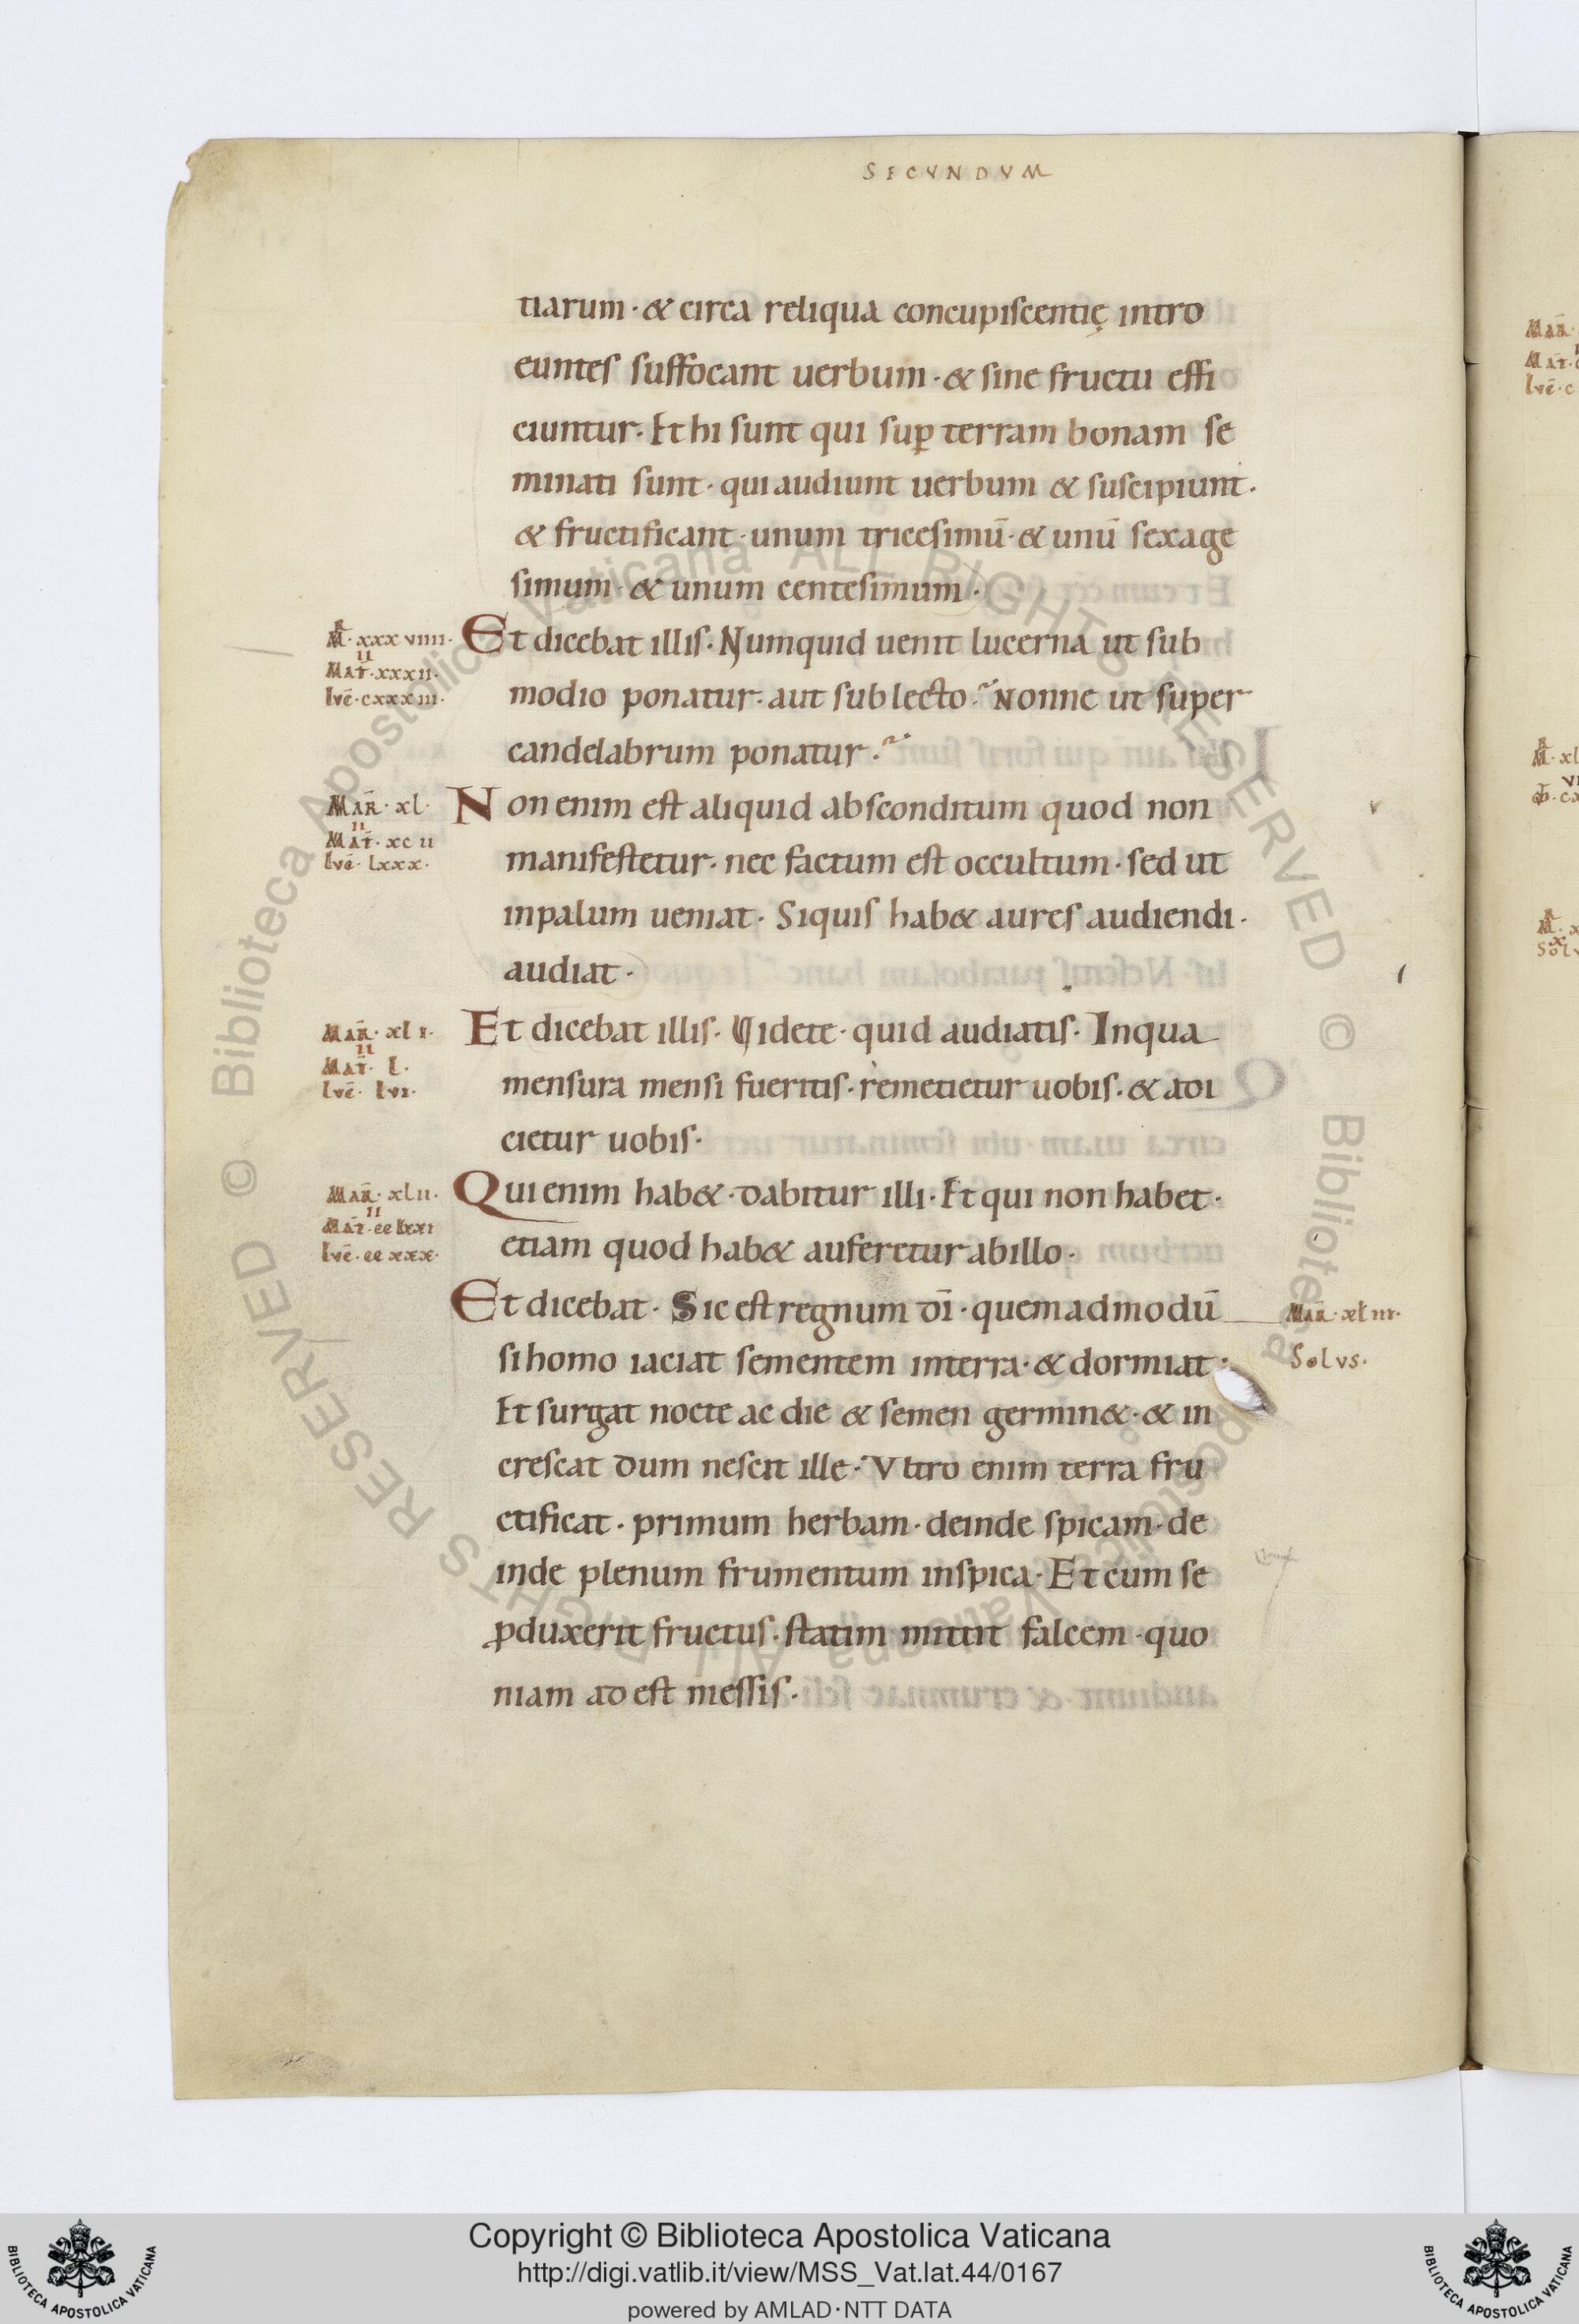 SECVNDVM
tiarum · & circa reliqua concupiscentię intro
euntes suffocant uerbum · & sine fructu effi
ciuntur · Et hi sunt qui suꝑ terram bonam se
minati sunt · qui audiunt uerbum & suscipiunt ·
& fructificant · unum tricesimū · & unū sexage
simum · & unum centesimum ·
MR · xxxviiii ·
II
MAT̄ · xxxii ·
lvc̄ · cxxxiii ·
Et dicebat illis · Numquid uenit lucerna ut sub
modio ponatur · aut sub lecto ? Nonne ut super
candelabrum ponatur ?
MAR̄ · xl ·
II
MAT̄ · xcii
lvc̄ · lxxx ·
Non enim est aliquid absconditum quod non
manifestetur · nec factum est occultum · sed ut
inpalum ueniat · Siquis hab& aures audiendi ·
audiat ·
MAR̄ · xli ·
II
MAT̄ · l ·
lvc̄ · lvi ·
Et dicebat illis · Videte · quid audiatis · Inqua
mensura mensi fueritis · remetietur uobis · & adi
cietur uobis ·
MAR̄ · xlii ·
II
MAT̄ · cclxxi
lvc̄ · ccxxx ·
Qui enim hab& · dabitur illi · Et qui non habet ·
etiam quod hab& auferetur abillo ·
Et dicebat · Sic est regnum dī · quemadmodū
MAR̄ · xliii ·
Solvs ·
si homo iaciat sementem interra · & dormiat ·
Et surgat nocte ac die & semen germin& · & in
crescat dum nescit ille · Vltro enim terra fru
ctificat · primum herbam · deinde spicam · de
inde plenum frumentum inspica · Et cum se
ꝓduxerit fructus · statim mittit falcem · quo
niam adest messis ·
Copyright © Biblioteca Apostolica Vaticana
http://digi.vatlib.it/view/MSS_Vat.lat.44/0167
powered by AMLAD·NTT DATA
BIBLIOTECA APOSTOLICA VATICANA
BIBLIOTECA APOSTOLICA VATICANA
© Biblioteca Apostolica Vaticana ALL RIGHTS RESERVED
© Biblioteca Apostolica Vaticana ALL RIGHTS RESERVED